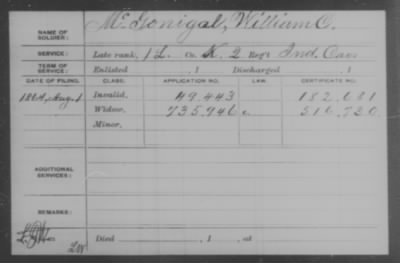 NAME OF SOLDIER: McGonigal, William C.
SERVICE: Late rank, 1 L. Co. K, 2 Reg't Ind. Cav
TERM OF SERVICE: Enlisted , 1 Discharged , 1
DATE OF FILING. CLASS. APPLICATION NO. LAW. CERTIFICATE NO.
1864, Aug. 1 Invalid. 49.443 182.681
Widow. 735,946 516.730
Minor.
ADDITIONAL SERVICES:
REMARKS:
Died , 1 , at